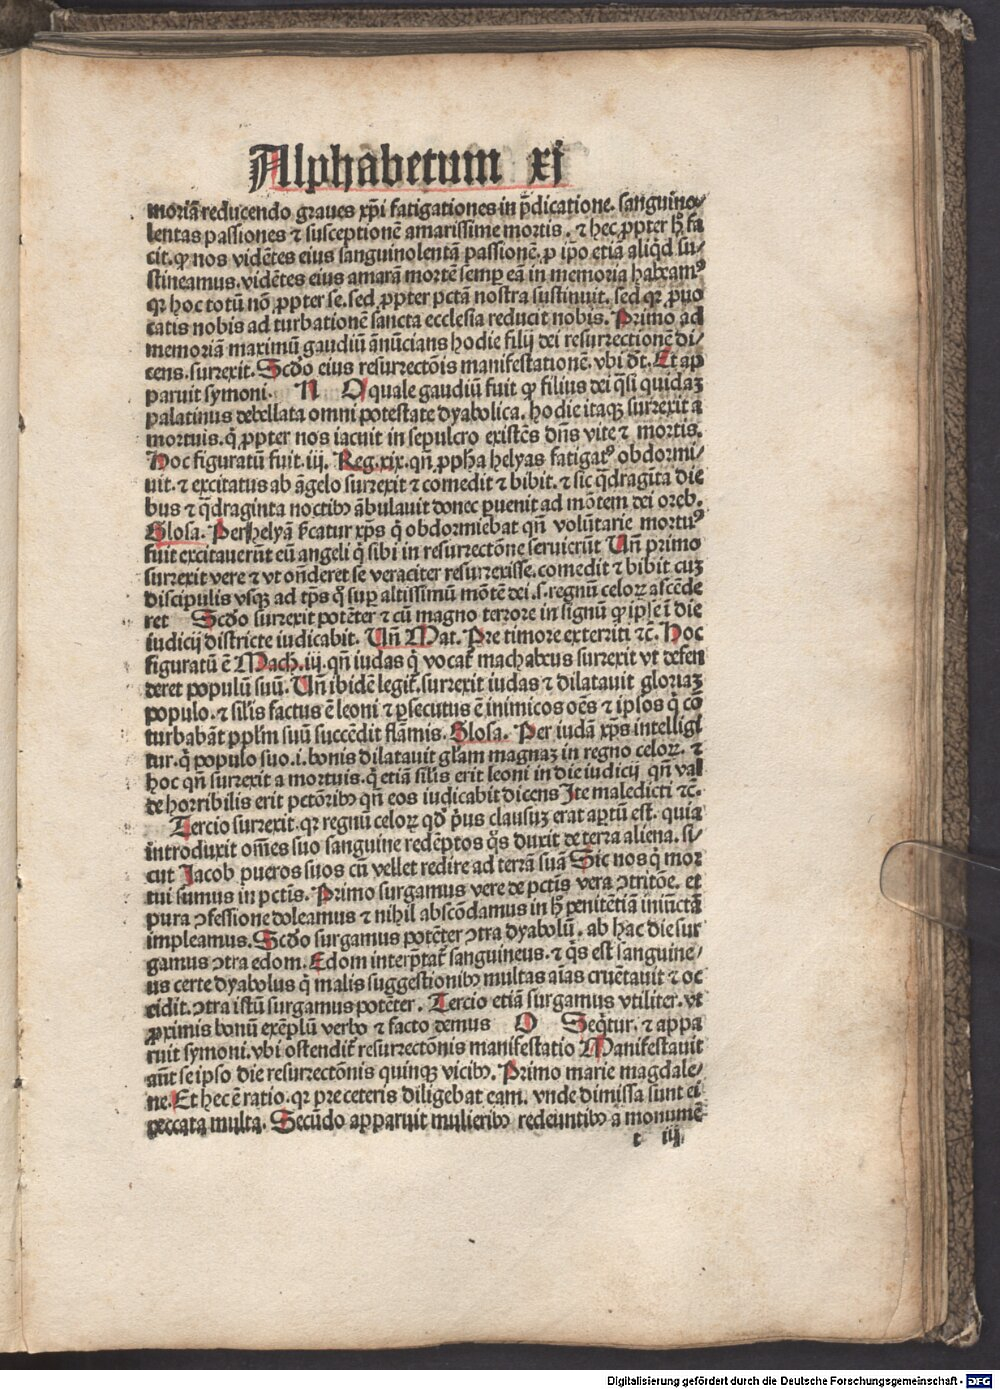 Alphabetum xj
moriã reducendo graues xp̃i fatigationes in p̃dicatione. sanguino⸗
lentas passiones ⁊ susceptionẽ amarissime mortis. ⁊ hec ꝓpter hͦ fa
cit. ꝙ nos vidẽtes eius sanguinolentã passionẽ. ꝓ ip̃o etiã aliq̃d su⸗
stineamus. vidẽtes eius amarã mortẽ semꝑ eã in memoria habeamꝰ
qꝛ hoc totũ nõ ꝓpter se. sed ꝓpter pctã nostra sustinuit. sed qꝛ ꝓuo
catis nobis ad turbationẽ sancta ecclesia reducit nobis. Primo ad
memoriã maximũ gaudiũ ãnũcians hodie filij dei resurrectionẽ di⸗
cens. surrexit. Scḋo eius resurrectõis manifestationẽ. vbi dt̃. Et ap
paruit symoni. N O quale gaudiũ fuit ꝙ filius dei q̃si quidaꝫ
palatinus debellata omni potestate dyabolica. hodie itaqꝫ surrexit a
mortuis. q̇ ꝓpter nos iacuit in sepulcro existẽs dñs vite ⁊ mortis.
Hoc figuratũ fuit. iij. Reg. xix. qñ ꝓpħa helyas fatigatꝰ obdormi⸗
uit. ⁊ excitatus ab ãgelo surrexit ⁊ comedit ⁊ bibit. ⁊ sic q̃dragĩta die
bus ⁊ q̃draginta noctibꝰ ãbulauit donec ꝑuenit ad mõtem dei oreb.
Glosa. Per helyã ſc̃catur xp̃s q̇ obdormiebat qñ volũtarie mortuꝰ
fuit excitauerũt eũ angeli q̇ sibi in resurrectõne seruierũt Uñ primo
surrexit vere ⁊ vt oñderet se veraciter resurrexisse. comedit ⁊ bibit cuꝫ
discipulis vsqꝫ ad tp̃s q̊ suꝑ altissimũ mõtẽ dei. s. regnũ celoꝝ ascẽde
ret Scḋo surrexit potẽter ⁊ cũ magno terrore in signũ ꝙ ip̃se ĩ die
iudicij districte iudicabit. Uñ Mat. Pre timore exterriti ⁊c̃. Hoc
figuratũ ẽ Mach. iij. qñ iudas q̇ vocat̃ machabeus surrexit vt defen
deret populũ suũ. Uñ ibidẽ legit̃. surrexit iudas ⁊ dilatauit gloriaꝫ
populo. ⁊ sil̃is factus ẽ leoni ⁊ ꝑsecutus ẽ inimicos oẽs ⁊ ipsos q̇ cõ
turbabãt ppl̃m suũ succẽdit flãmis. Glosa. Per iudã xp̃s intelligi
tur. q̇ populo suo. i. bonis dilatauit gl̃am magnaꝫ in regno celoꝝ. ⁊
hoc qñ surrexit a mortuis. q̇ etiã sil̃is erit leoni in die iudicij qñ val
de horribilis erit pctõribꝰ qñ eos iudicabit dicens Ite maledicti ⁊c̃.
Tercio surrexit. qꝛ regnũ celoꝝ qḋ p̃us clausuꝫ erat aꝑtũ est. quia
introduxit om̃es suo sanguine redẽptos q̊s duxit de terra aliena. si⸗
cut Jacob pueros suos cũ vellet redire ad terrã suã Sic nos q̇ mor
tui sumus in pctĩs. Primo surgamus vere de pctĩs vera ↄtritõe. et
pura ↄfessione doleamus ⁊ nihil abscõdamus in hͦ penitẽtiã iniũctã
impleamus. Scḋo surgamus potẽter ↄtra dyabolũ. ab hac die sur
gamus ↄtra edom. Edom interp̃tat̃ sanguineus. ⁊ q̃s est sanguine⸗
us certe dyabolus q̇ malis suggestionibꝰ multas aĩas cruẽtauit ⁊ oc
cidit. ↄtra istũ surgamus potẽter. Tercio etiã surgamus vtiliter. vt
ꝓximis bonũ exẽplũ verbo ⁊ facto demus O Seq̃tur. ⁊ appa
ruit symoni. vbi ostendit̃ resurrectõnis manifestatio Manifestauit
aũt se ipso die resurrectõnis quinqꝫ vicibꝰ. Primo marie magdale⸗
ne. Et hec ẽ ratio. qꝛ pre ceteris diligebat eam. vnde dimissa sunt ei
peccata multa. Secũdo apparuit mulieribꝰ redeuntibꝰ a monumẽ
t iij
Digitalisierung gefördert durch die Deutsche Forschungsgemeinschaft - DFG